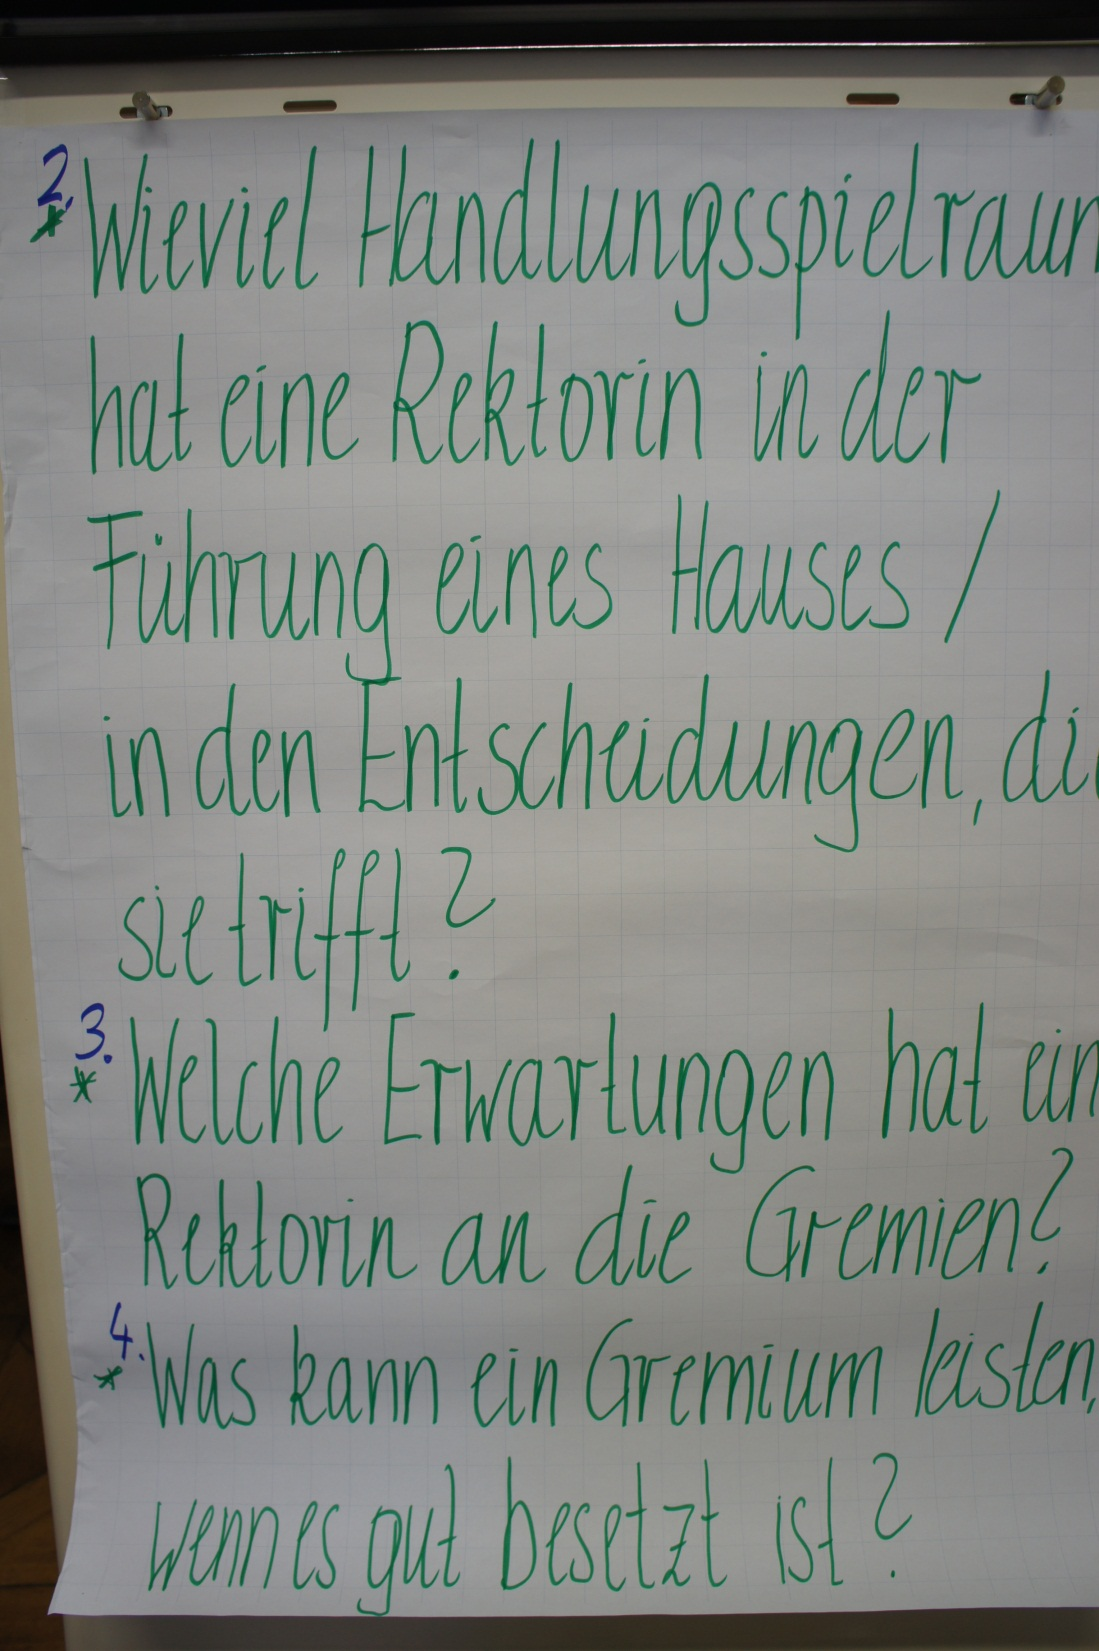 2.
* Wieviel Handlungsspielraum
hat eine Rektorin in der
Führung eines Hauses /
in den Entscheidungen, die
sie trifft?
3.
* Welche Erwartungen hat ein
Rektorin an die Gremien?
4.
* Was kann ein Gremium leisten,
wenn es gut besetzt ist?